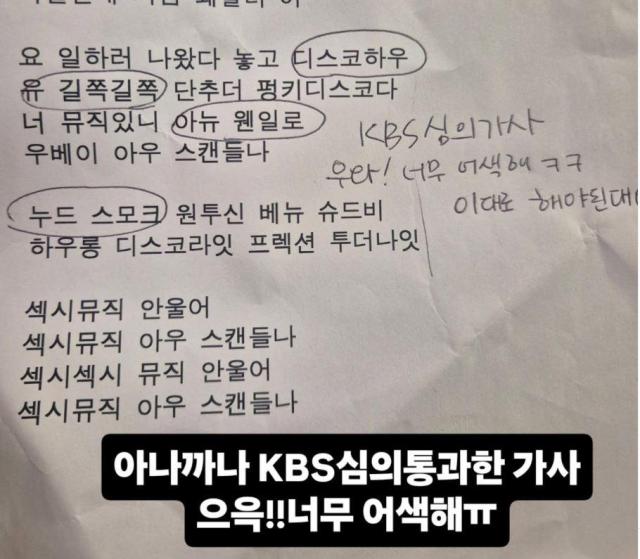 요 일하러 나왔다 놓고 디스코하우
유 길쭉길쭉 단추더 펑키디스코다
너 뮤직있니 아뉴 웬일로
우베이 아우 스캔들나
KBS심의가사
우라! 너무 어색해 ㅋㅋ
이대로 해야된대
누드 스모크 원투신 베뉴 슈드비
하우롱 디스코라잇 프렉션 투더나잇
섹시뮤직 안울어
섹시뮤직 아우 스캔들나
섹시섹시 뮤직 안울어
섹시뮤직 아우 스캔들나
아나까나 KBS심의통과한 가사
으윽!!너무 어색해ㅠ